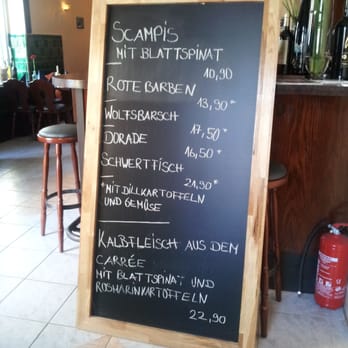 SCAMPIS
MIT BLATTSPINAT
10,90
ROTE BARBEN
13,90*
WOLFSBARSCH
17,50*
DORADE
16,50*
SCHWERTFISCH
21,90*
*MIT DILLKARTOFFELN
UND GEMÜSE
KALBFLEISCH AUS DEM
CARRÉE
MIT BLATTSPINAT UND
ROSMARINKARTOFFELN
22,90